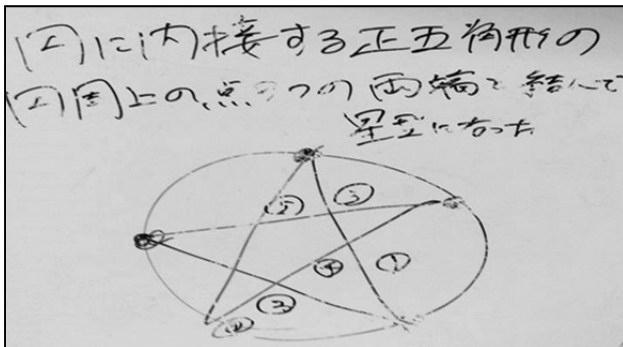 円に内接する正五角形の
円周上の点5つの両端を結んで
星型になった
⑤ ③
④ ①
②